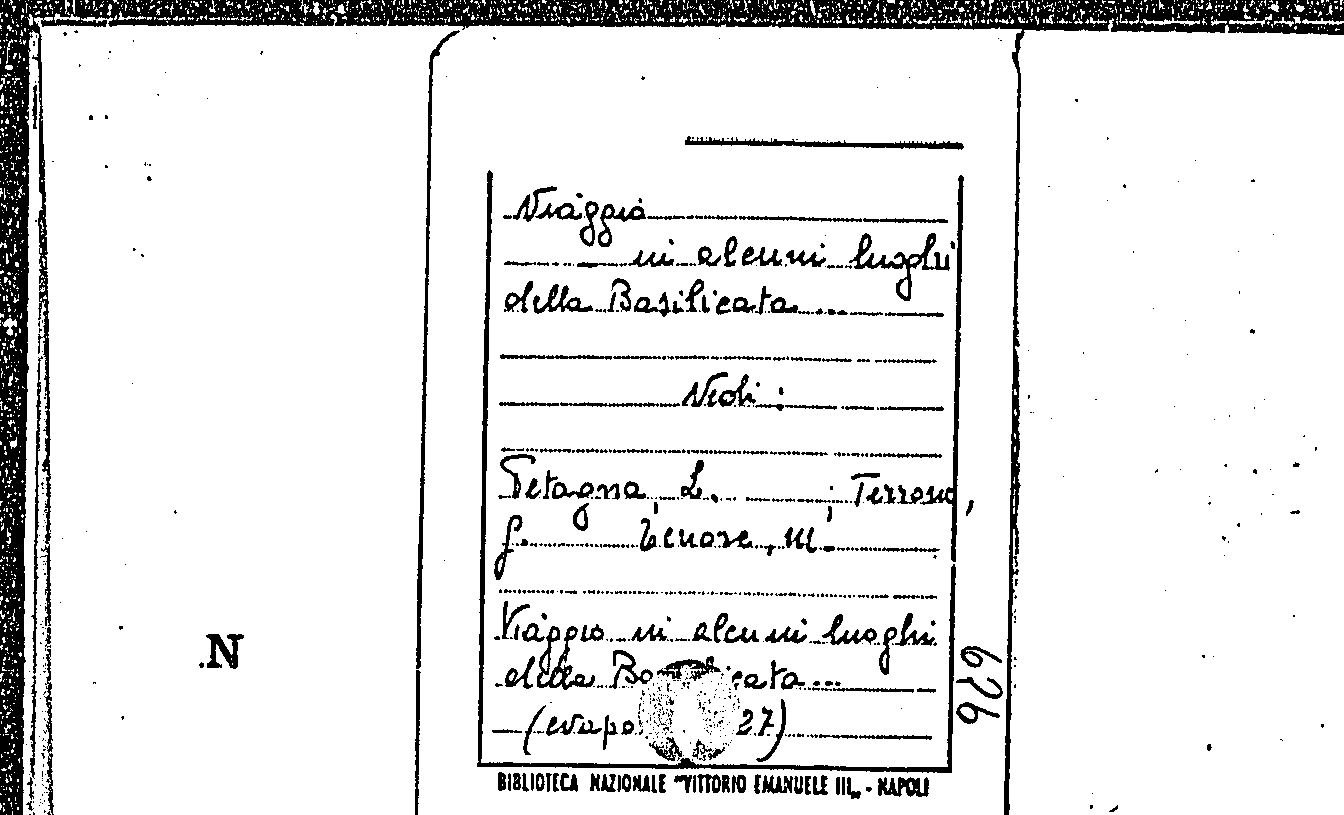 Viaggio
in alcuni luoghi
della Basilicata ...
Vedi :
Petagna L. ; Terrone,
G. ; Tenore, M.
Viaggio in alcuni luoghi
della
(
27)
BIBLIOTECA NAZIONALE "VITTORIO EMANUELE III„ - NAPOLI
N
626